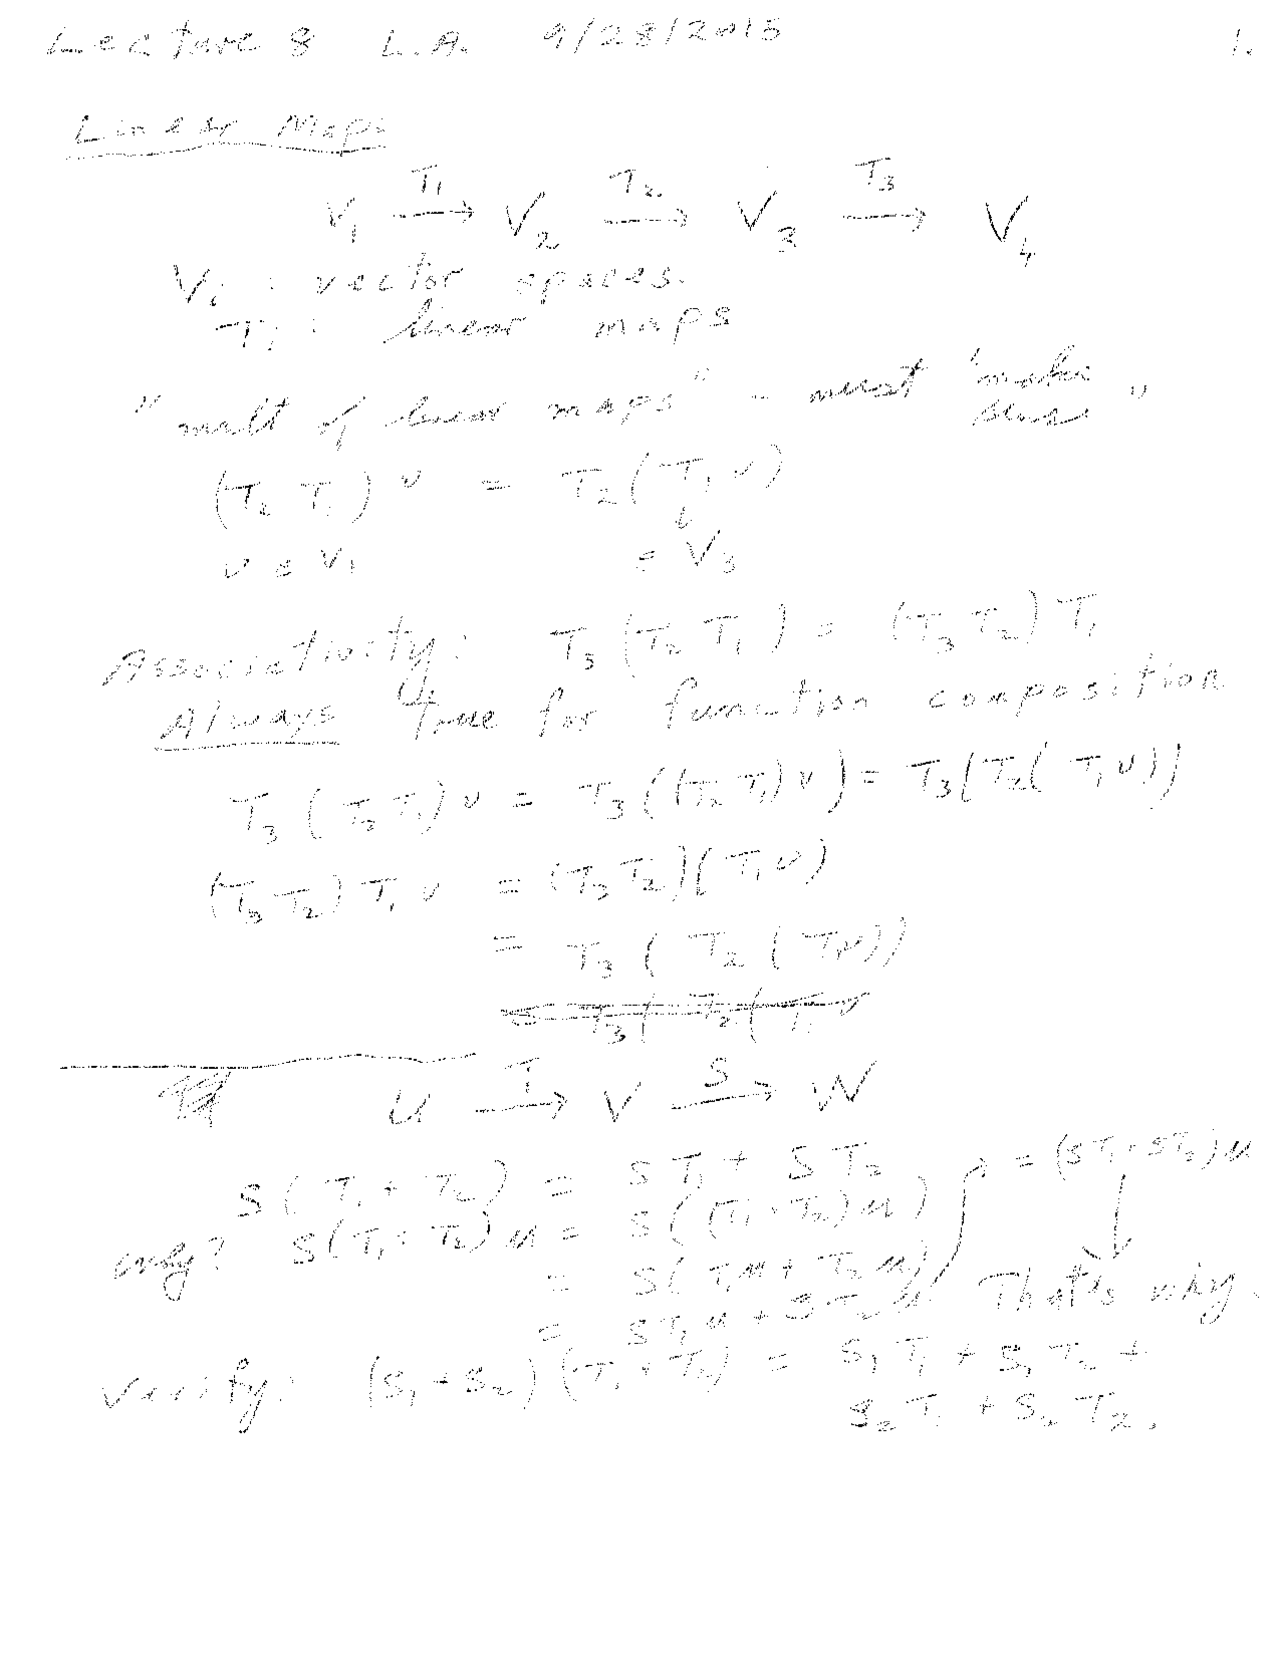 Lecture 8 L.A. 9/28/2015 1.
Linear Maps
V₁ →T₁ V₂ →T₂ V₃ →T₃ V₄
Vᵢ : vector spaces.
Tᵢ : linear maps
"mult of linear maps" - must "make sense"
(T₂ T₁) v = T₂(T₁ v)
v ∈ V₁ ∈ V₃
Associativity: T₃(T₂ T₁) = (T₃ T₂) T₁
Always true for function composition
T₃(T₂ T₁) v = T₃((T₂ T₁) v) = T₃(T₂(T₁ v))
(T₃ T₂) T₁ v = (T₃ T₂)(T₁ v)
= T₃(T₂(T₁v))
U →T V →S W
S(T₁ + T₂) = S T₁ + S T₂ = (ST₁ + ST₂) u
why? S(T₁ + T₂) u = S((T₁ + T₂) u)
= S(T₁u + T₂u)
= S T₁ u + S T₂ u That's why.
Verify: (S₁ + S₂)(T₁ + T₂) = S₁ T₁ + S₁ T₂ +
S₂ T₁ + S₂ T₂.